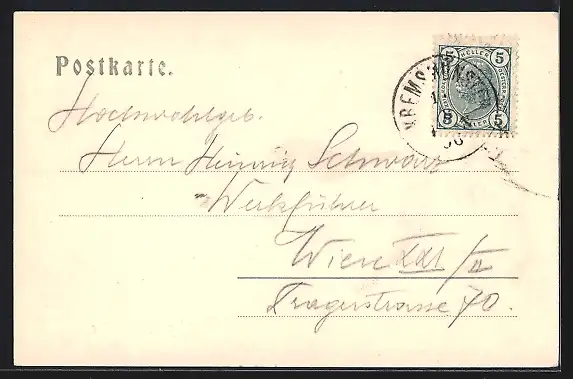 Postkarte.
5 HELLER 5
KREMSMÜNSTER
5 HELLER 5
Hochwohlgeb.
Herrn Heinrig Schwarz
Werkführer
Wien XXI/II
Tragerstrasse 70.